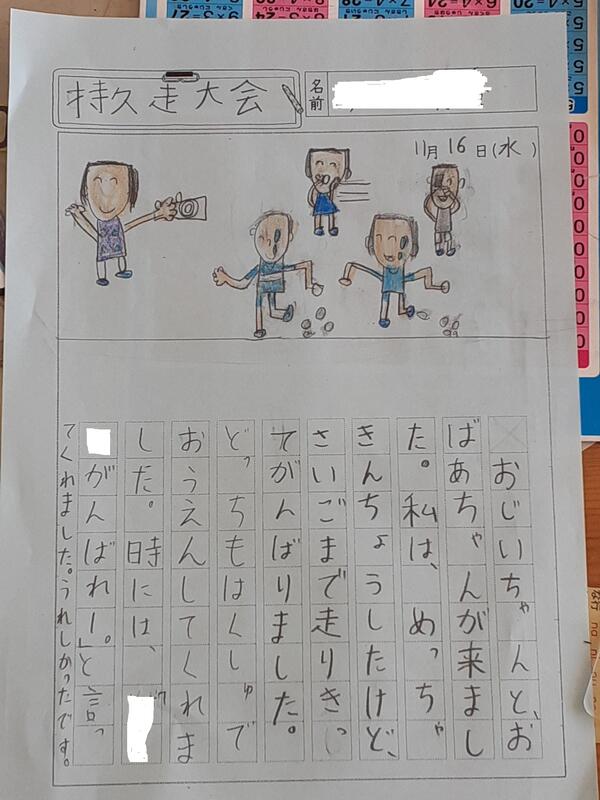 持久走大会
名前
11月16日(水)
おじいちゃんと、お
ばあちゃんが来まし
た。私は、めっちゃ
きんちょうしたけど、
さいごまで走りきっ
てがんばりました。
どっちもはくしゅで
おうえんしてくれま
した。時には、「
がんばれー。」と言っ
てくれました。うれしかったです。
6×4=24
5×4=20
な行 na ni nu